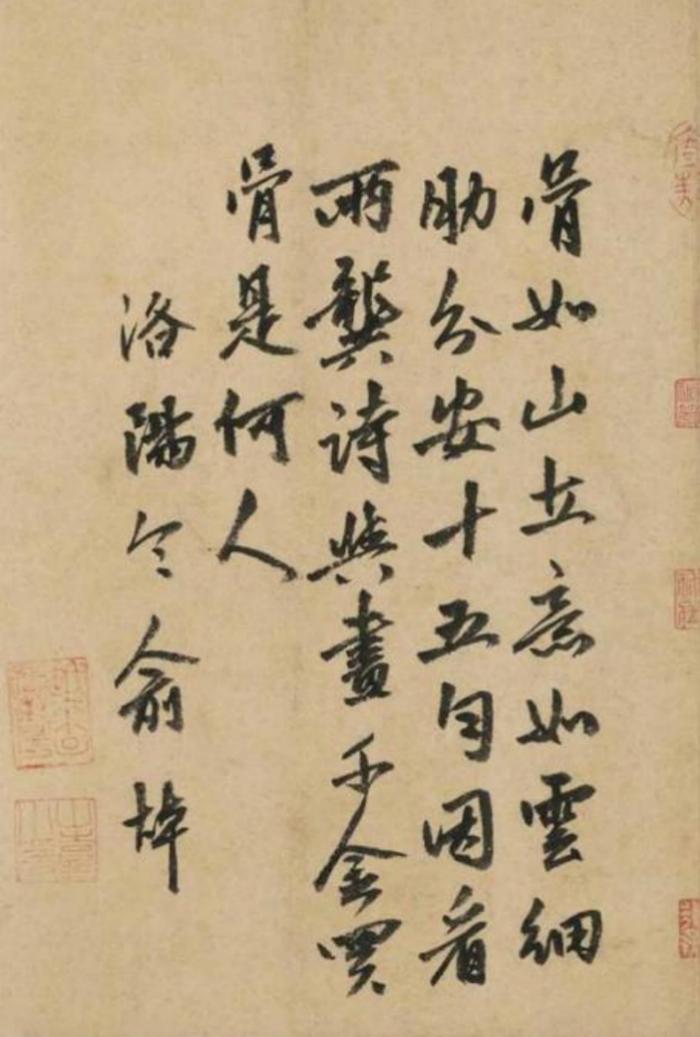 骨如山立意如雲細
肋分安十五勻因看
兩龔詩與畫千金買
骨是何人
洛陽令俞焯